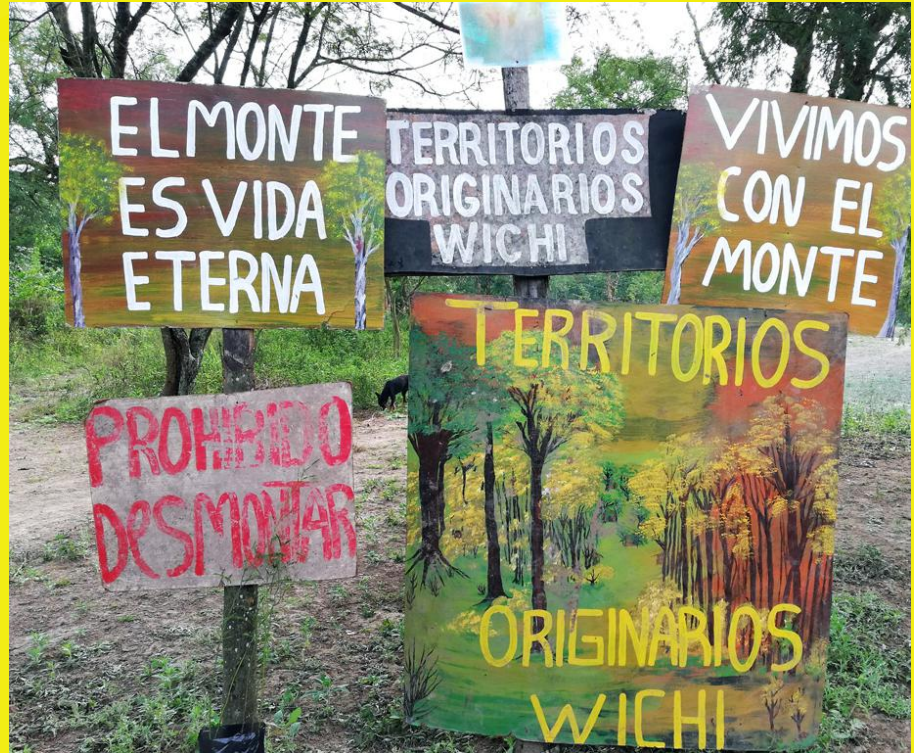 EL MONTE
ES VIDA
ETERNA
TERRITORIOS
ORIGINARIOS
WICHI
VIVIMOS
CON EL
MONTE
PROHIBIDO
DESMONTAR
TERRITORIOS
ORIGINARIOS
WICHI